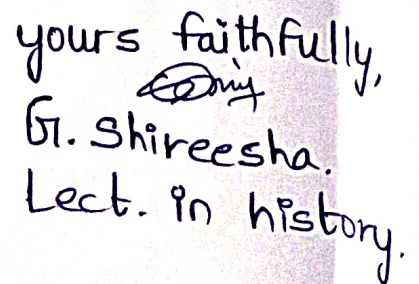 yours faithfully,
G. Shireesha.
Lect. in history.